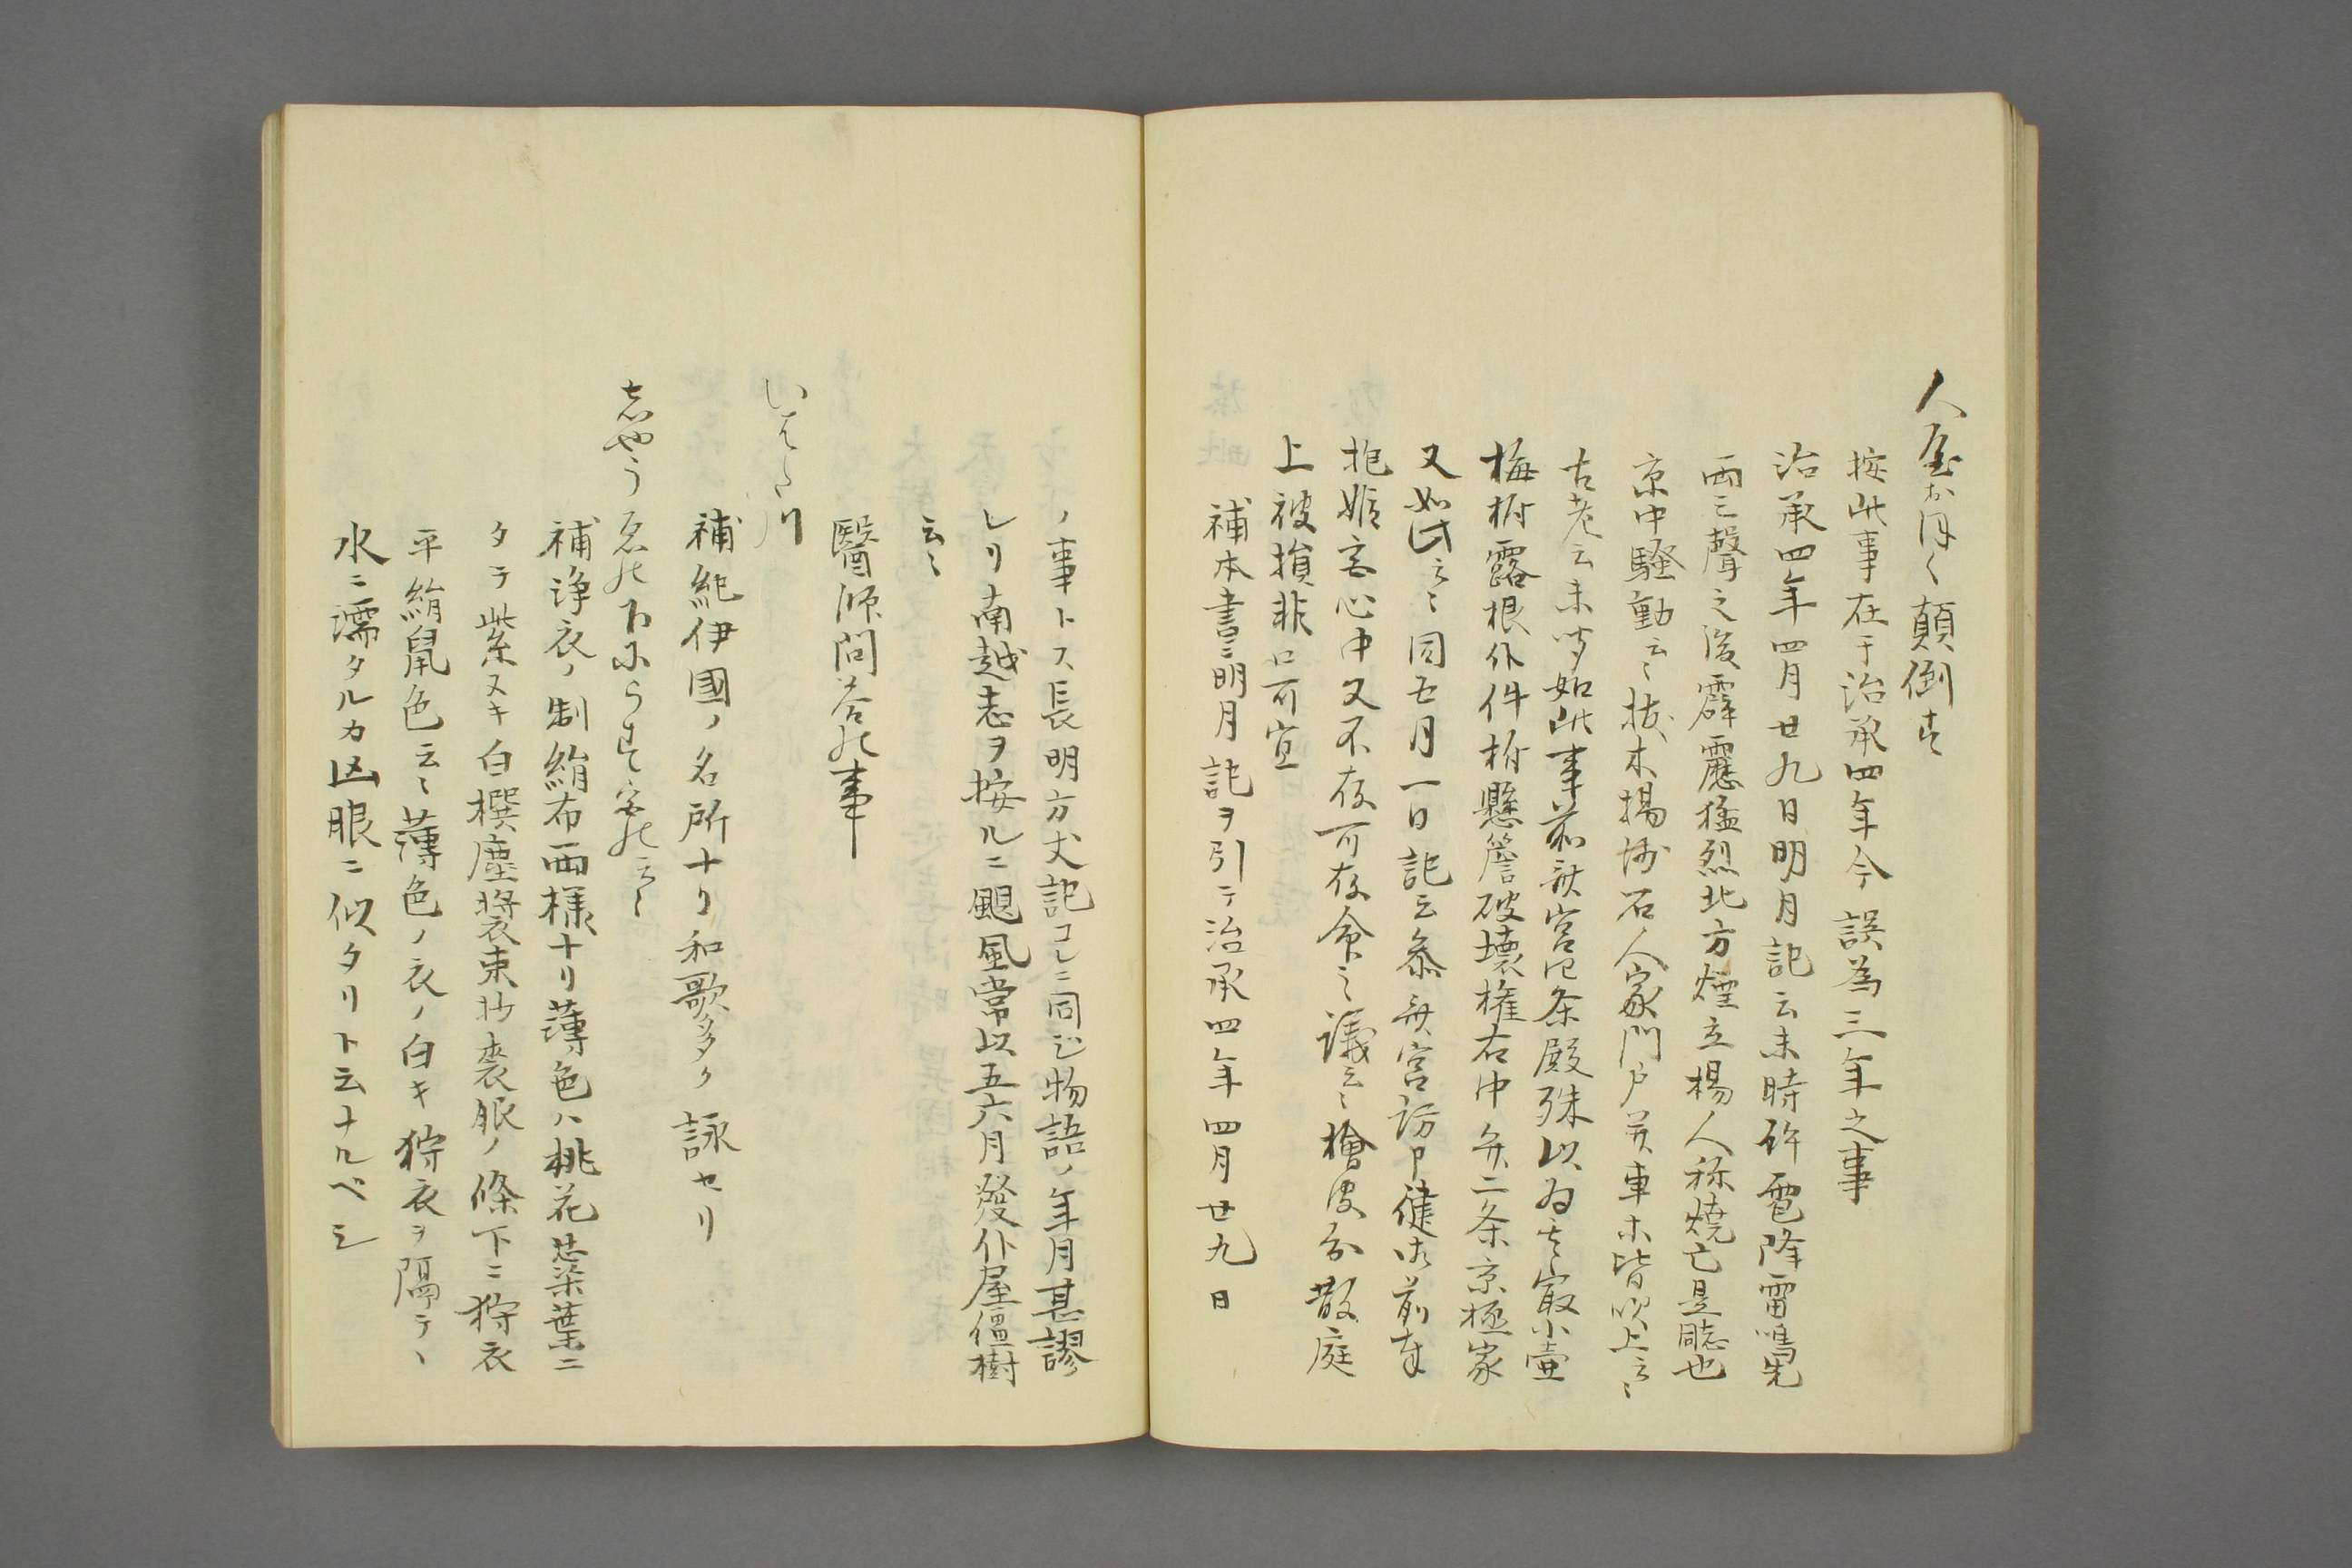 人屋おほく顛倒す
按此事在于治承四年今誤為三年之事
治承四年四月廿九日明月記云未時許雹降雷鳴先
両三聲之後霹靂猛烈北方煙立揚人称焼亡是飈也
京中騒動云〻抜木揚沙石人家門戸并車等皆吹上云〻
古老云未聞如此事前斎宮四条殿殊以為其最小壷
梅樹露根仆件樹懸簷破壊権右中弁二条京極家
又如此云〻同五月一日記云参斎宮訪申健御前年
抱嫉妬心中又不存可存命之議云〻檜皮分散庭
上被損非口可宣
補本書ニ明月記ヲ引テ治承四年四月廿九日
ノ事トス長明方丈記コレニ同じ物語ノ年月甚謬
レリ南越志ヲ按ルニ颶風常以五六月發仆屋僵樹
云〻
醫師問答の事
いはた川
補紀伊國ノ名所ナリ和歌多ク詠セリ
志やうゑの下にうすいろの云〻
補浄衣ノ制絹布両様ナリ薄色ハ桃花蘂葉ニ
タテ紫ヌキ白撰塵装束抄喪服ノ條下ニ狩衣
平絹鼠色云〻薄色ノ衣ノ白キ狩衣ヲ隔テヽ
水ニ濡タルカ凶服ニ似タリト云ナルベシ